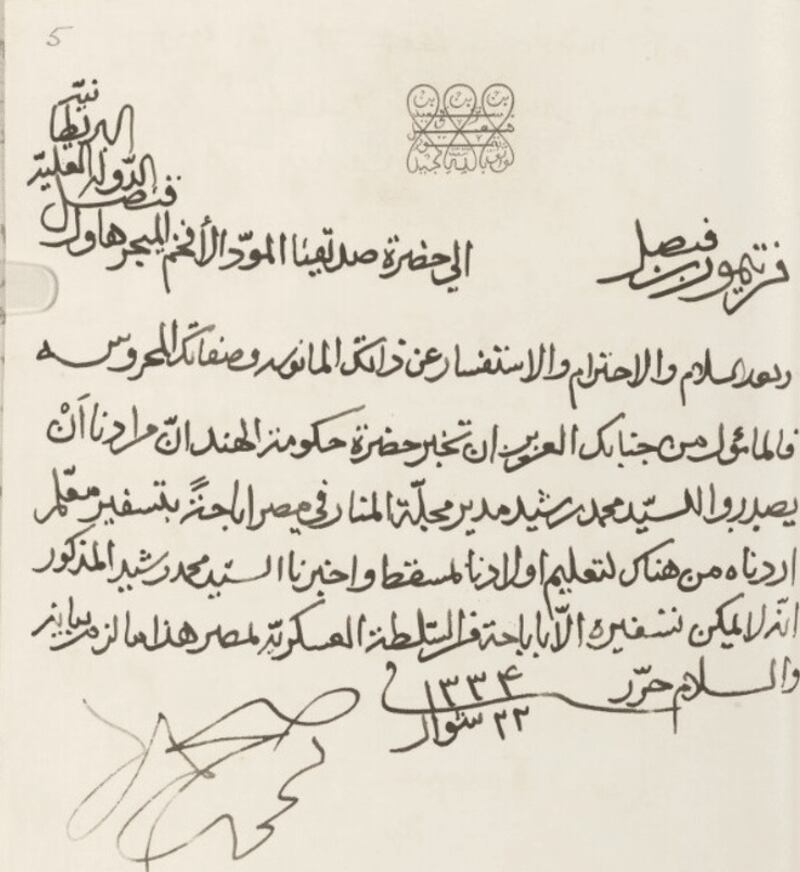 5
من تيمور بن فيصل
الي حضرة صديقنا المودّ الأفخم الميجر هاول
قنصل
الدّولة العليّة
البريطانيّة
وبعد السلام والاحترام والاستفسار عن ذاتك المانوسه وصفاتك المحروسه
فالمامٔول من جنابك العزيز ان تخبر حضرة حكومة الهند انّ مرادنا اَنْ
يصدروا للسيّد محمد رشيد مدير مجلّة المنار في مصر اباحةً بتسفير معلّم
اردناه من هناك لتعليم اولادنا لمسقط واخبرنا السيّد محمد رشيد المذكور
انّه لا يمكن تسفيره الاّ باباحة من السّلطة العسكريّة لمصر هذا ما لزم بيانه
والسلام حرّر
٢٢ شوال ١٣٣٤